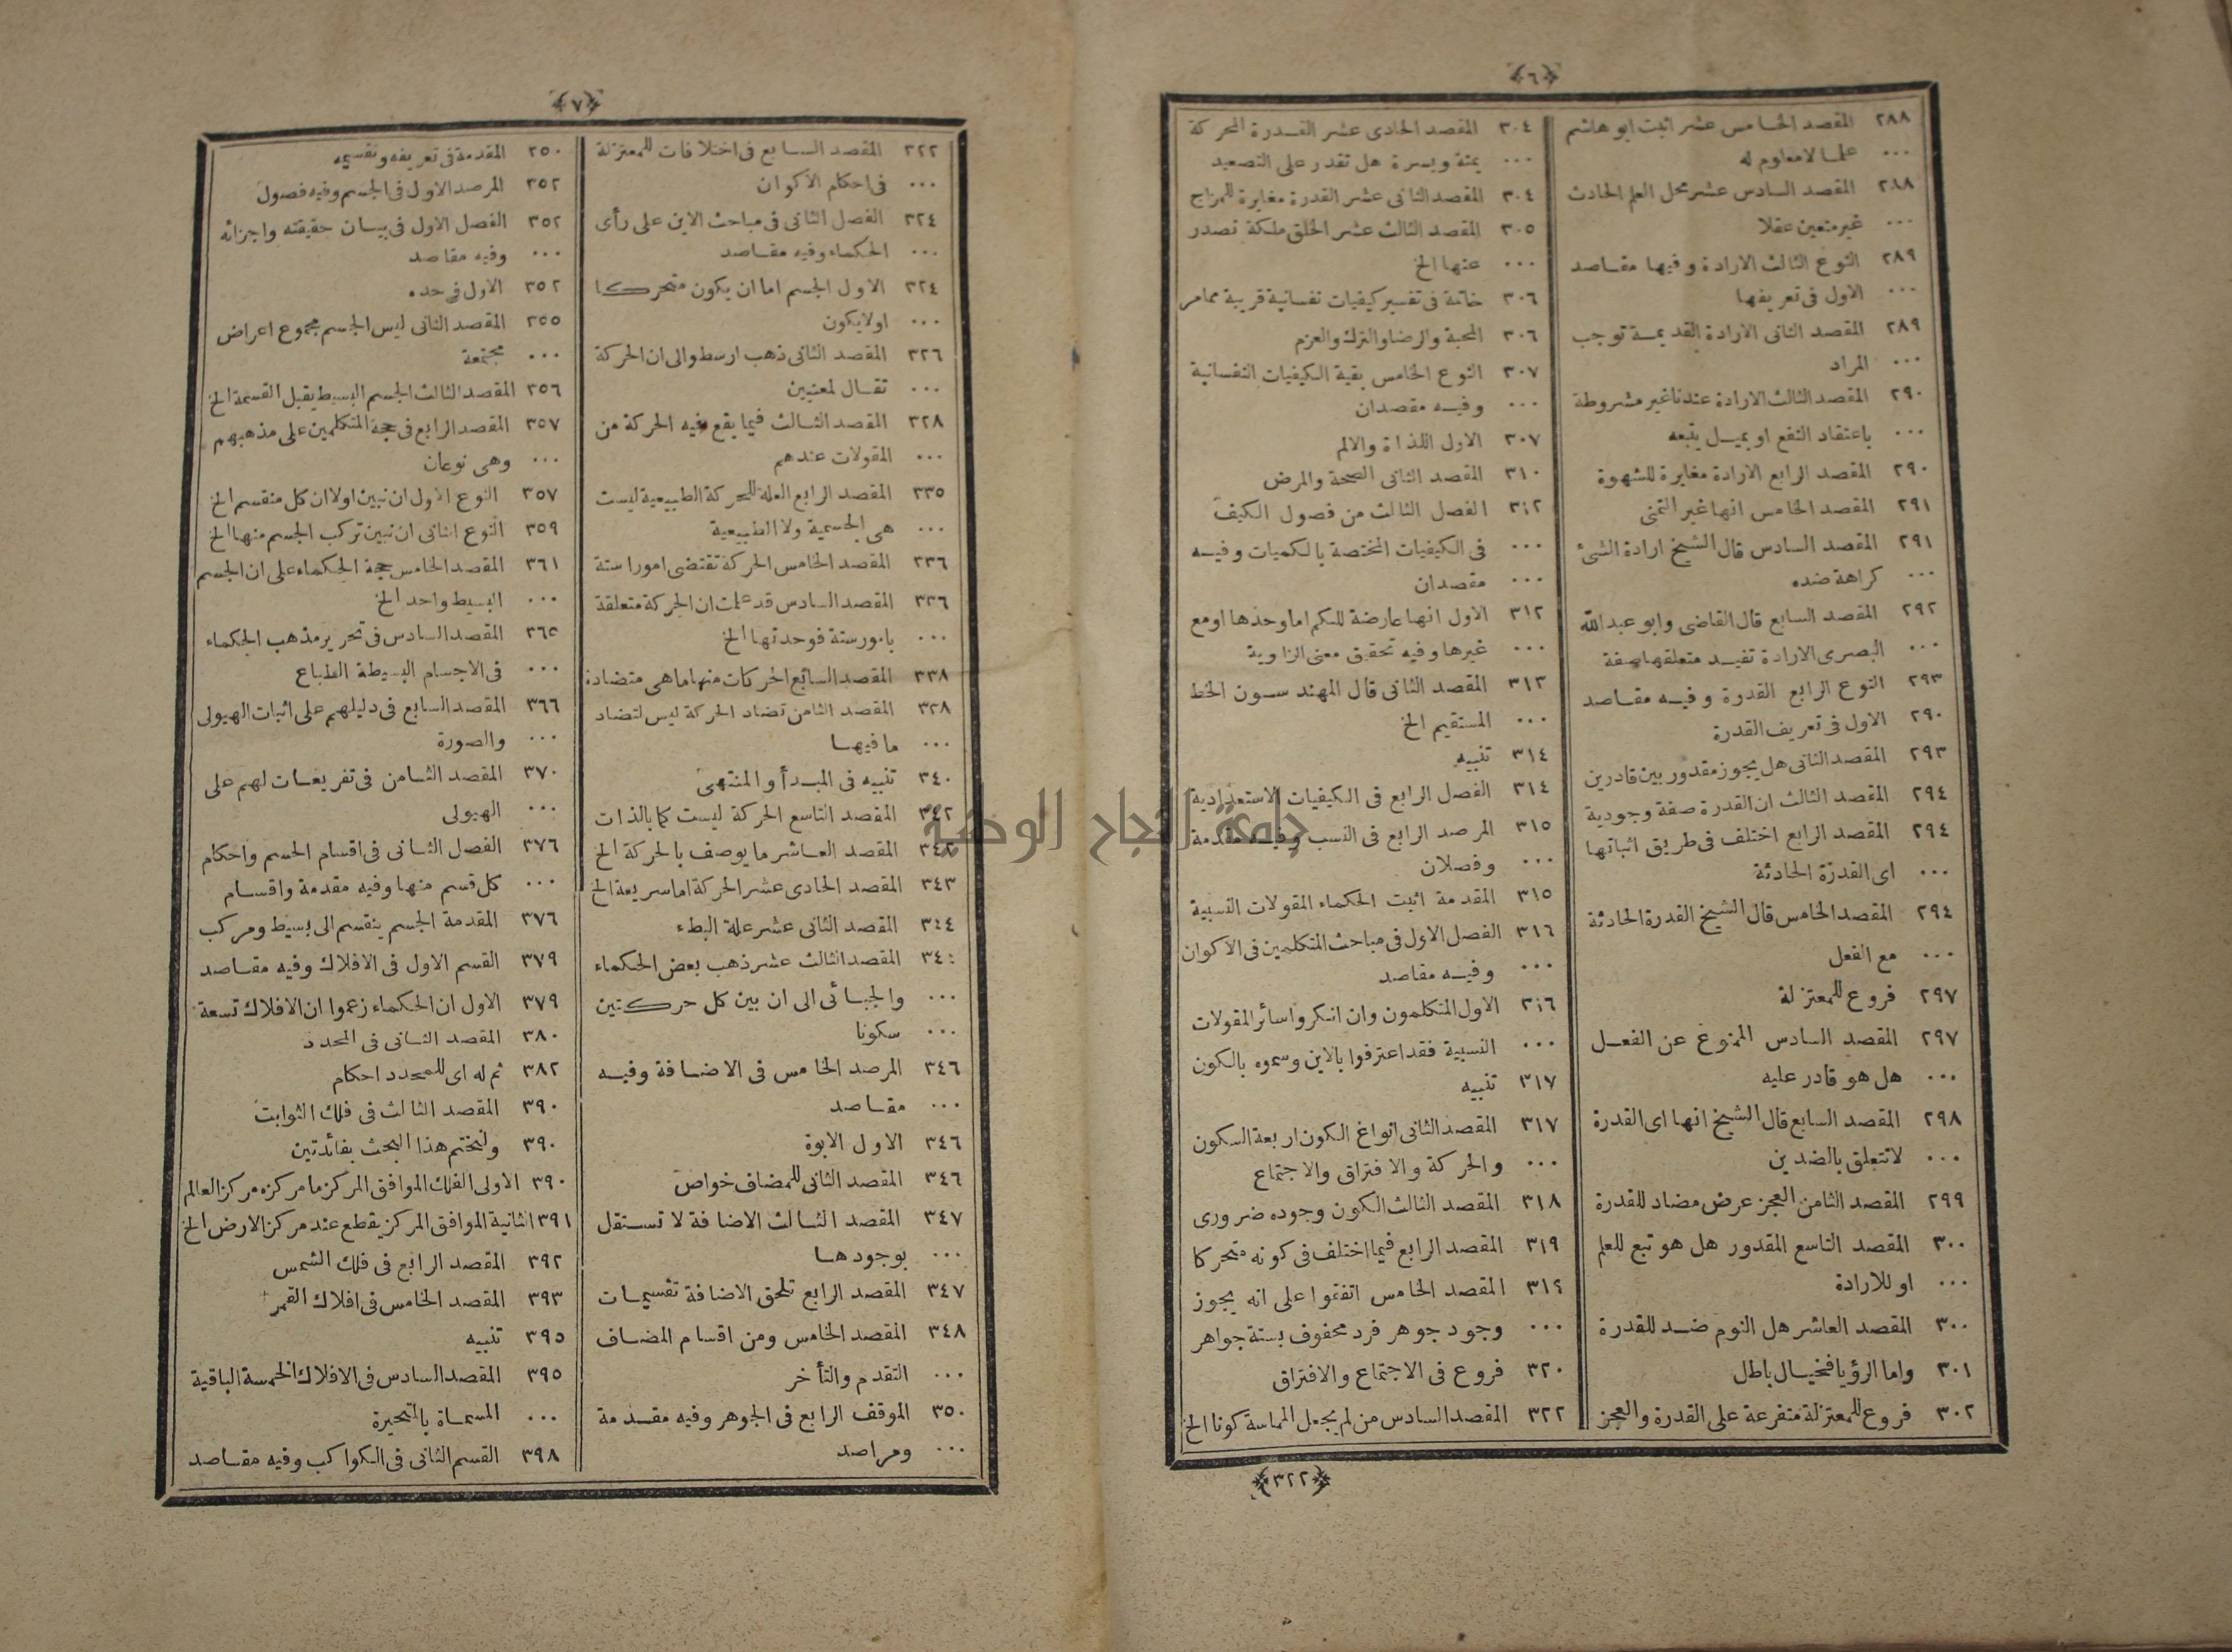 ﴿٦﴾
٢٨٨ المقصد الخامس عشر اثبت ابو هاشم
... علما لامعلوم له
٢٨٨ المقصد السادس عشر محل العلم الحادث
... غير متعين عقلا
٢٨٩ النوع الثالث الارادة وفيها مقاصد
... الاول فى تعريفها
٢٨٩ المقصد الثانى الارادة القديمة توجب
... المراد
٢٩٠ المقصد الثالث الارادة عندنا غير مشروطة
... باعتقاد النفع او بميل يتبعه
٢٩٠ المقصد الرابع الارادة مغايرة للشهوة
٢٩١ المقصد الخامس انها غير التمنى
٢٩١ المقصد السادس قال الشيخ ارادة الشئ
... كراهة ضده
٢٩٢ المقصد السابع قال القاضى وابو عبد الله
... البصرى الارادة تفيد متعلقها صفة
٢٩٣ النوع الرابع القدرة وفيه مقاصد
٢٩٠ الاول فى تعريف القدرة
٢٩٣ المقصد الثانى هل يجوز مقدور بين قادرين
٢٩٤ المقصد الثالث ان القدرة صفة وجودية
٢٩٤ المقصد الرابع اختلف فى طريق اثباتها
... اى القدرة الحادثة
٢٩٤ المقصد الخامس قال الشيخ القدرة الحادثة
... مع الفعل
٢٩٧ فروع للمعتزلة
٢٩٧ المقصد السادس الممنوع عن الفعل
... هل هو قادر عليه
٢٩٨ المقصد السابع قال الشيخ انها اى القدرة
... لاتتعلق بالضدين
٢٩٩ المقصد الثامن العجز عرض مضاد للقدرة
٣٠٠ المقصد التاسع المقدور هل هو تبع للعلم
... او للارادة
٣٠٠ المقصد العاشر هل النوم ضد للقدرة
٣٠١ واما الرؤيا فخيال باطل
٣٠٢ فروع للمعتزلة متفرعة على القدرة والعجز
٣٠٤ المقصد الحادى عشر القدرة المحركة
... يمنة ويسرة هل تقدر على التصعيد
٣٠٤ المقصد الثانى عشر القدرة مغايرة للمزاج
٣٠٥ المقصد الثالث عشر الخلق ملكة تصدر
... عنها الخ
٣٠٦ خاتمة فى تفسير كيفيات نفسانية قريبة ممامر
٣٠٦ المحبة والرضا والترك والعزم
٣٠٧ النوع الخامس بقية الكيفيات النفسانية
... وفيه مقصدان
٣٠٧ الاول اللذة والالم
٣١٠ المقصد الثانى الصحة والمرض
٣١٢ الفصل الثالث من فصول الكيف
... فى الكيفيات المختصة بالكميات وفيه
... مقصدان
٣١٢ الاول انها عارضة للكم اما وحدها اومع
... غيرها وفيه تحقيق معنى الزاوية
٣١٣ المقصد الثانى قال المهندسون الخط
... المستقيم الخ
٣١٤ تنبيه
٣١٤ الفصل الرابع فى الكيفيات الاستعدادية
٣١٥ المرصد الرابع فى النسب وفيه مقدمة
... وفصلان
٣١٥ المقدمة اثبت الحكماء المقولات النسبية
٣١٦ الفصل الاول فى مباحث المتكلمين فى الاكوان
... وفيه مقاصد
٣١٦ الاول المتكلمون وان انكروا سائر المقولات
... النسبية فقد اعترفوا بالاين وسموه بالكون
٣١٧ تنبيه
٣١٧ المقصد الثانى انواع الكون اربعة السكون
... والحركة والافتراق والاجتماع
٣١٨ المقصد الثالث الكون وجوده ضرورى
٣١٩ المقصد الرابع فيما اختلف فى كونه متحركا
٣١٩ المقصد الخامس اتفقوا على انه يجوز
... وجود جوهر فرد محفوف بستة جواهر
٣٢٠ فروع فى الاجتماع والافتراق
٣٢٢ المقصد السادس من لم يجعل المماسة كونا الخ
﴿٣٢٢﴾
﴿٧﴾
٣٢٢ المقصد السابع فى اختلافات للمعتزلة
... فى احكام الاكوان
٣٢٤ الفصل الثانى فى مباحث الاين على رأى
... الحكماء وفيه مقاصد
٣٢٤ الاول الجسم اما ان يكون متحركا
... اولايكون
٣٢٦ المقصد الثانى ذهب ارسطو الى ان الحركة
... تقال لمعنيين
٣٢٨ المقصد الثالث فيما يقع فيه الحركة من
... المقولات عندهم
٣٣٥ المقصد الرابع العلة للحركة الطبيعية ليست
... هى الجسمية ولا الطبيعية
٣٣٦ المقصد الخامس الحركة تقتضى امورا ستة
٣٣٦ المقصد السادس قد علمت ان الحركة متعلقة
... بامور ستة فوحدتها الخ
٣٣٨ المقصد السابع الحركات منها ماهى متضادة
٣٣٨ المقصد الثامن تضاد الحركة ليس لتضاد
... مافيها
٣٤٠ تنبيه فى المبدأ والمنتهى
٣٤٢ المقصد التاسع الحركة ليست كما بالذات
٣٤٢ المقصد العاشر ما يوصف بالحركة الخ
٣٤٣ المقصد الحادى عشر الحركة اما سريعة الخ
٣٤٤ المقصد الثانى عشر علة البطء
٣٤٠ المقصد الثالث عشر ذهب بعض الحكماء
... والجبائى الى ان بين كل حركتين
... سكونا
٣٤٦ المرصد الخامس فى الاضافة وفيه
... مقاصد
٣٤٦ الاول الابوة
٣٤٦ المقصد الثانى للمضاف خواص
٣٤٧ المقصد الثالث الاضافة لا تستقل
... بوجودها
٣٤٧ المقصد الرابع تلحق الاضافة تقسيمات
٣٤٨ المقصد الخامس ومن اقسام المضاف
... التقدم والتأخر
٣٥٠ الموقف الرابع فى الجوهر وفيه مقدمة
... ومراصد
٢٥٠ المقدمة فى تعريفه وتقسيمه
٣٥٢ المرصد الاول فى الجسم وفيه فصول
٣٥٢ الفصل الاول فى بيان حقيقته واجزائه
... وفيه مقاصد
٣٥٢ الاول فى حده
٣٥٥ المقصد الثانى ليس الجسم مجموع اعراض
... مجتمعة
٣٥٦ المقصد الثالث الجسم البسيط يقبل القسمة الخ
٣٥٧ المقصد الرابع فى حجة المتكلمين على مذهبهم
... وهى نوعان
٣٥٧ النوع الاول ان نبين اولا ان كل منقسم الخ
٣٥٩ النوع الثانى ان نبين تركب الجسم منها الخ
٣٦١ المقصد الخامس حجة الحكماء على ان الجسم
... البسيط واحد الخ
٣٦٥ المقصد السادس فى تحرير مذهب الحكماء
... فى الاجسام البسيطة الطباع
٣٦٦ المقصد السابع فى دليلهم على اثبات الهيولى
... والصورة
٣٧٠ المقصد الثامن فى تفريعات لهم على
... الهيولى
٣٧٦ الفصل الثانى فى اقسام الجسم واحكام
... كل قسم منها وفيه مقدمة واقسام
٣٧٦ المقدمة الجسم ينقسم الى بسيط ومركب
٣٧٩ القسم الاول فى الافلاك وفيه مقاصد
٣٧٩ الاول ان الحكماء زعموا ان الافلاك تسعة
٣٨٠ المقصد الثانى فى المحدد
٣٨٢ ثم له اى للمحدد احكام
٣٩٠ المقصد الثالث فى فلك الثوابت
٣٩٠ ولنختم هذا البحث بفائدتين
٣٩٠ الاولى الفلك الموافق المركز ما مركزه مركز العالم
٣٩١ الثانية الموافق المركز يقطع عند مركز الارض الخ
٣٩٢ المقصد الرابع فى فلك الشمس
٣٩٣ المقصد الخامس فى افلاك القمر
٣٩٥ تنبيه
٣٩٥ المقصد السادس فى الافلاك الخمسة الباقية
... المسماة بالمتحيرة
٣٩٨ القسم الثانى فى الكواكب وفيه مقاصد
جامعة النجاح الوطنية